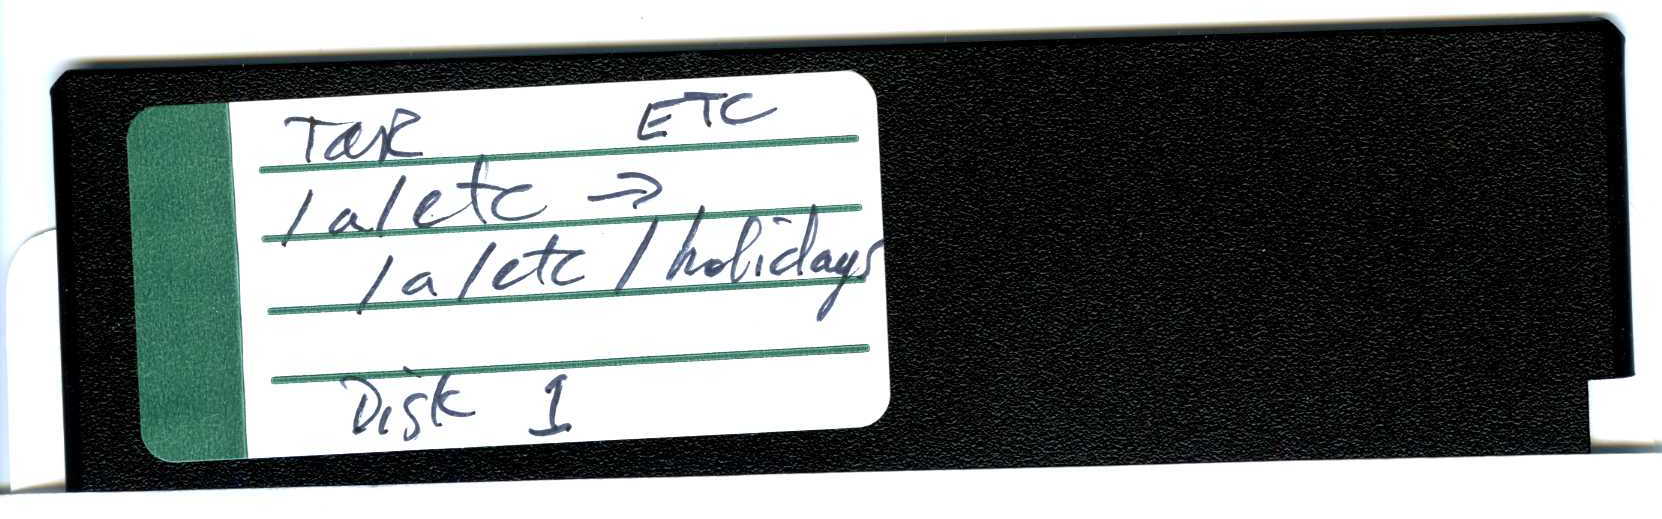 TaR ETC
/a/etc →
/a/etc/holidays
Disk 1